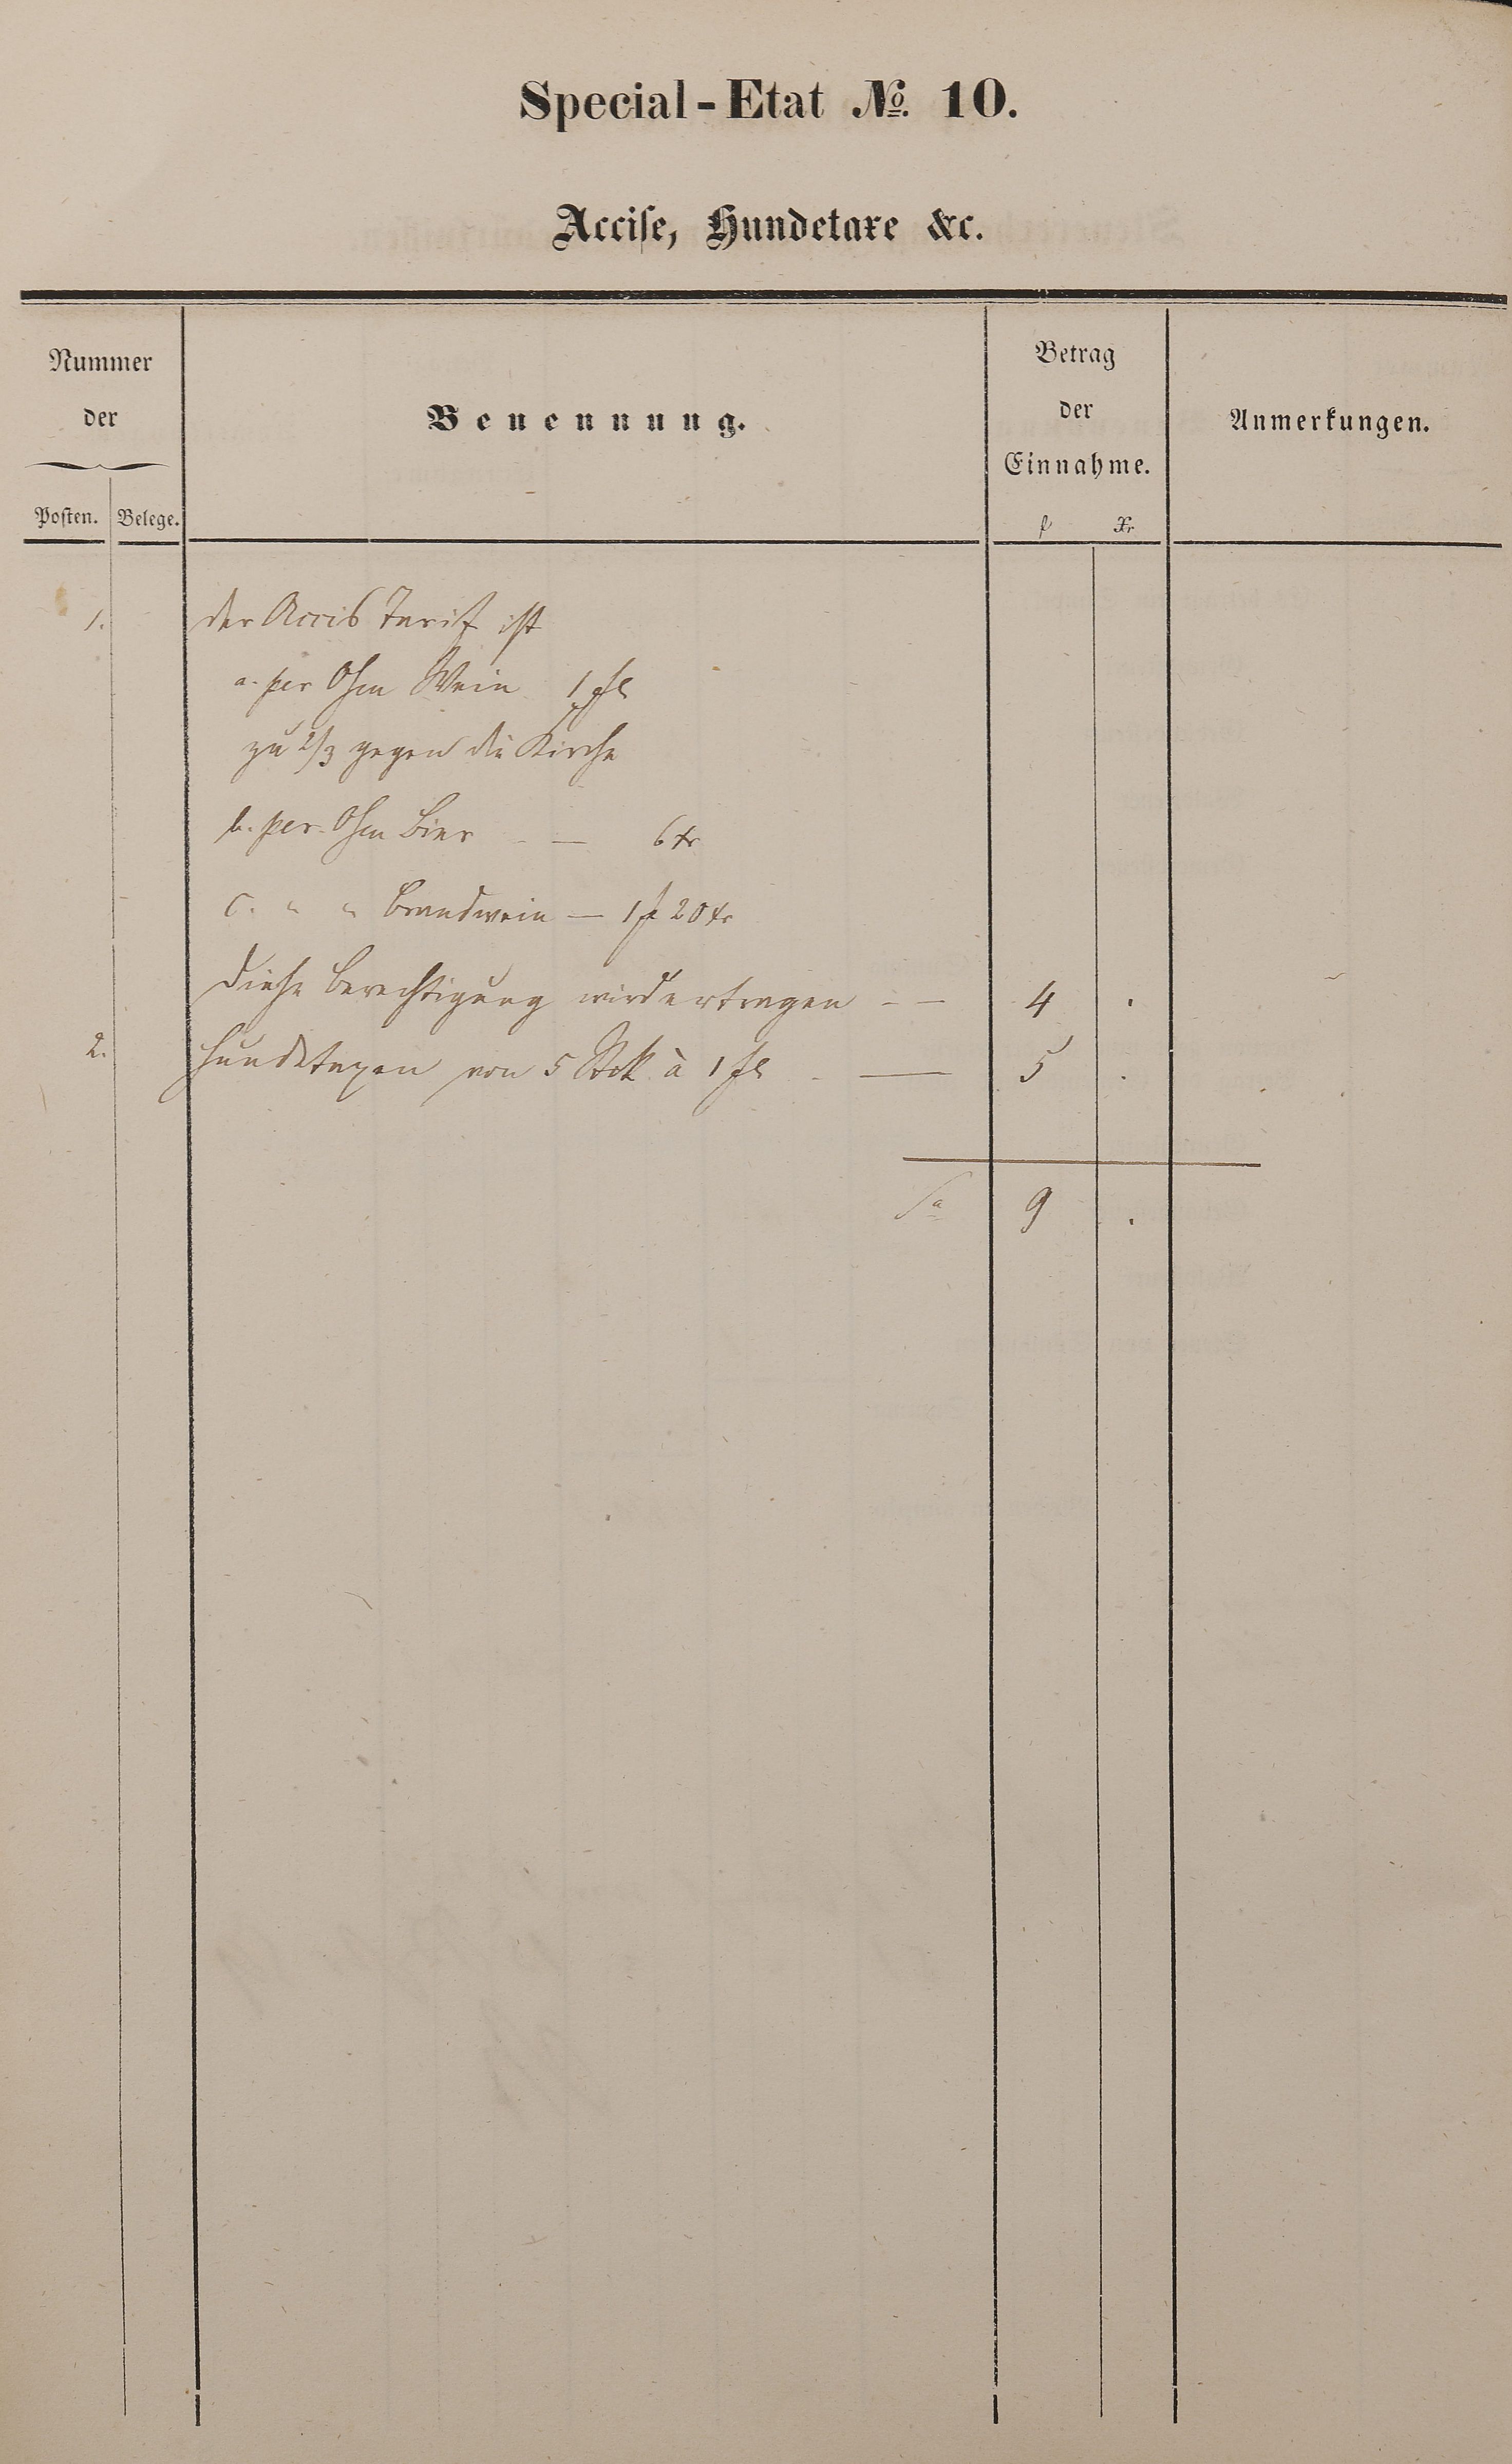 Special-Etat No. 10.
Accise, Hundetaxe &c.
Nummer
der
Posten. Belege.
Benennung.
Betrag
der
Einnahme.
f Xr
Anmerkungen.
1. der Accis Tarif ist
a. per Ohm Wein 1 fl
zu 2/3 gegen die Kirche
b. per Ohm Bier - — 6 xr
c. " " Brandwein — 1 f 20 xr
diese Berechtigung wird ertragen - — 4 .
2. Hundstaxen von 5 Stck à 1 fl - — 5 .
Sa 9 .